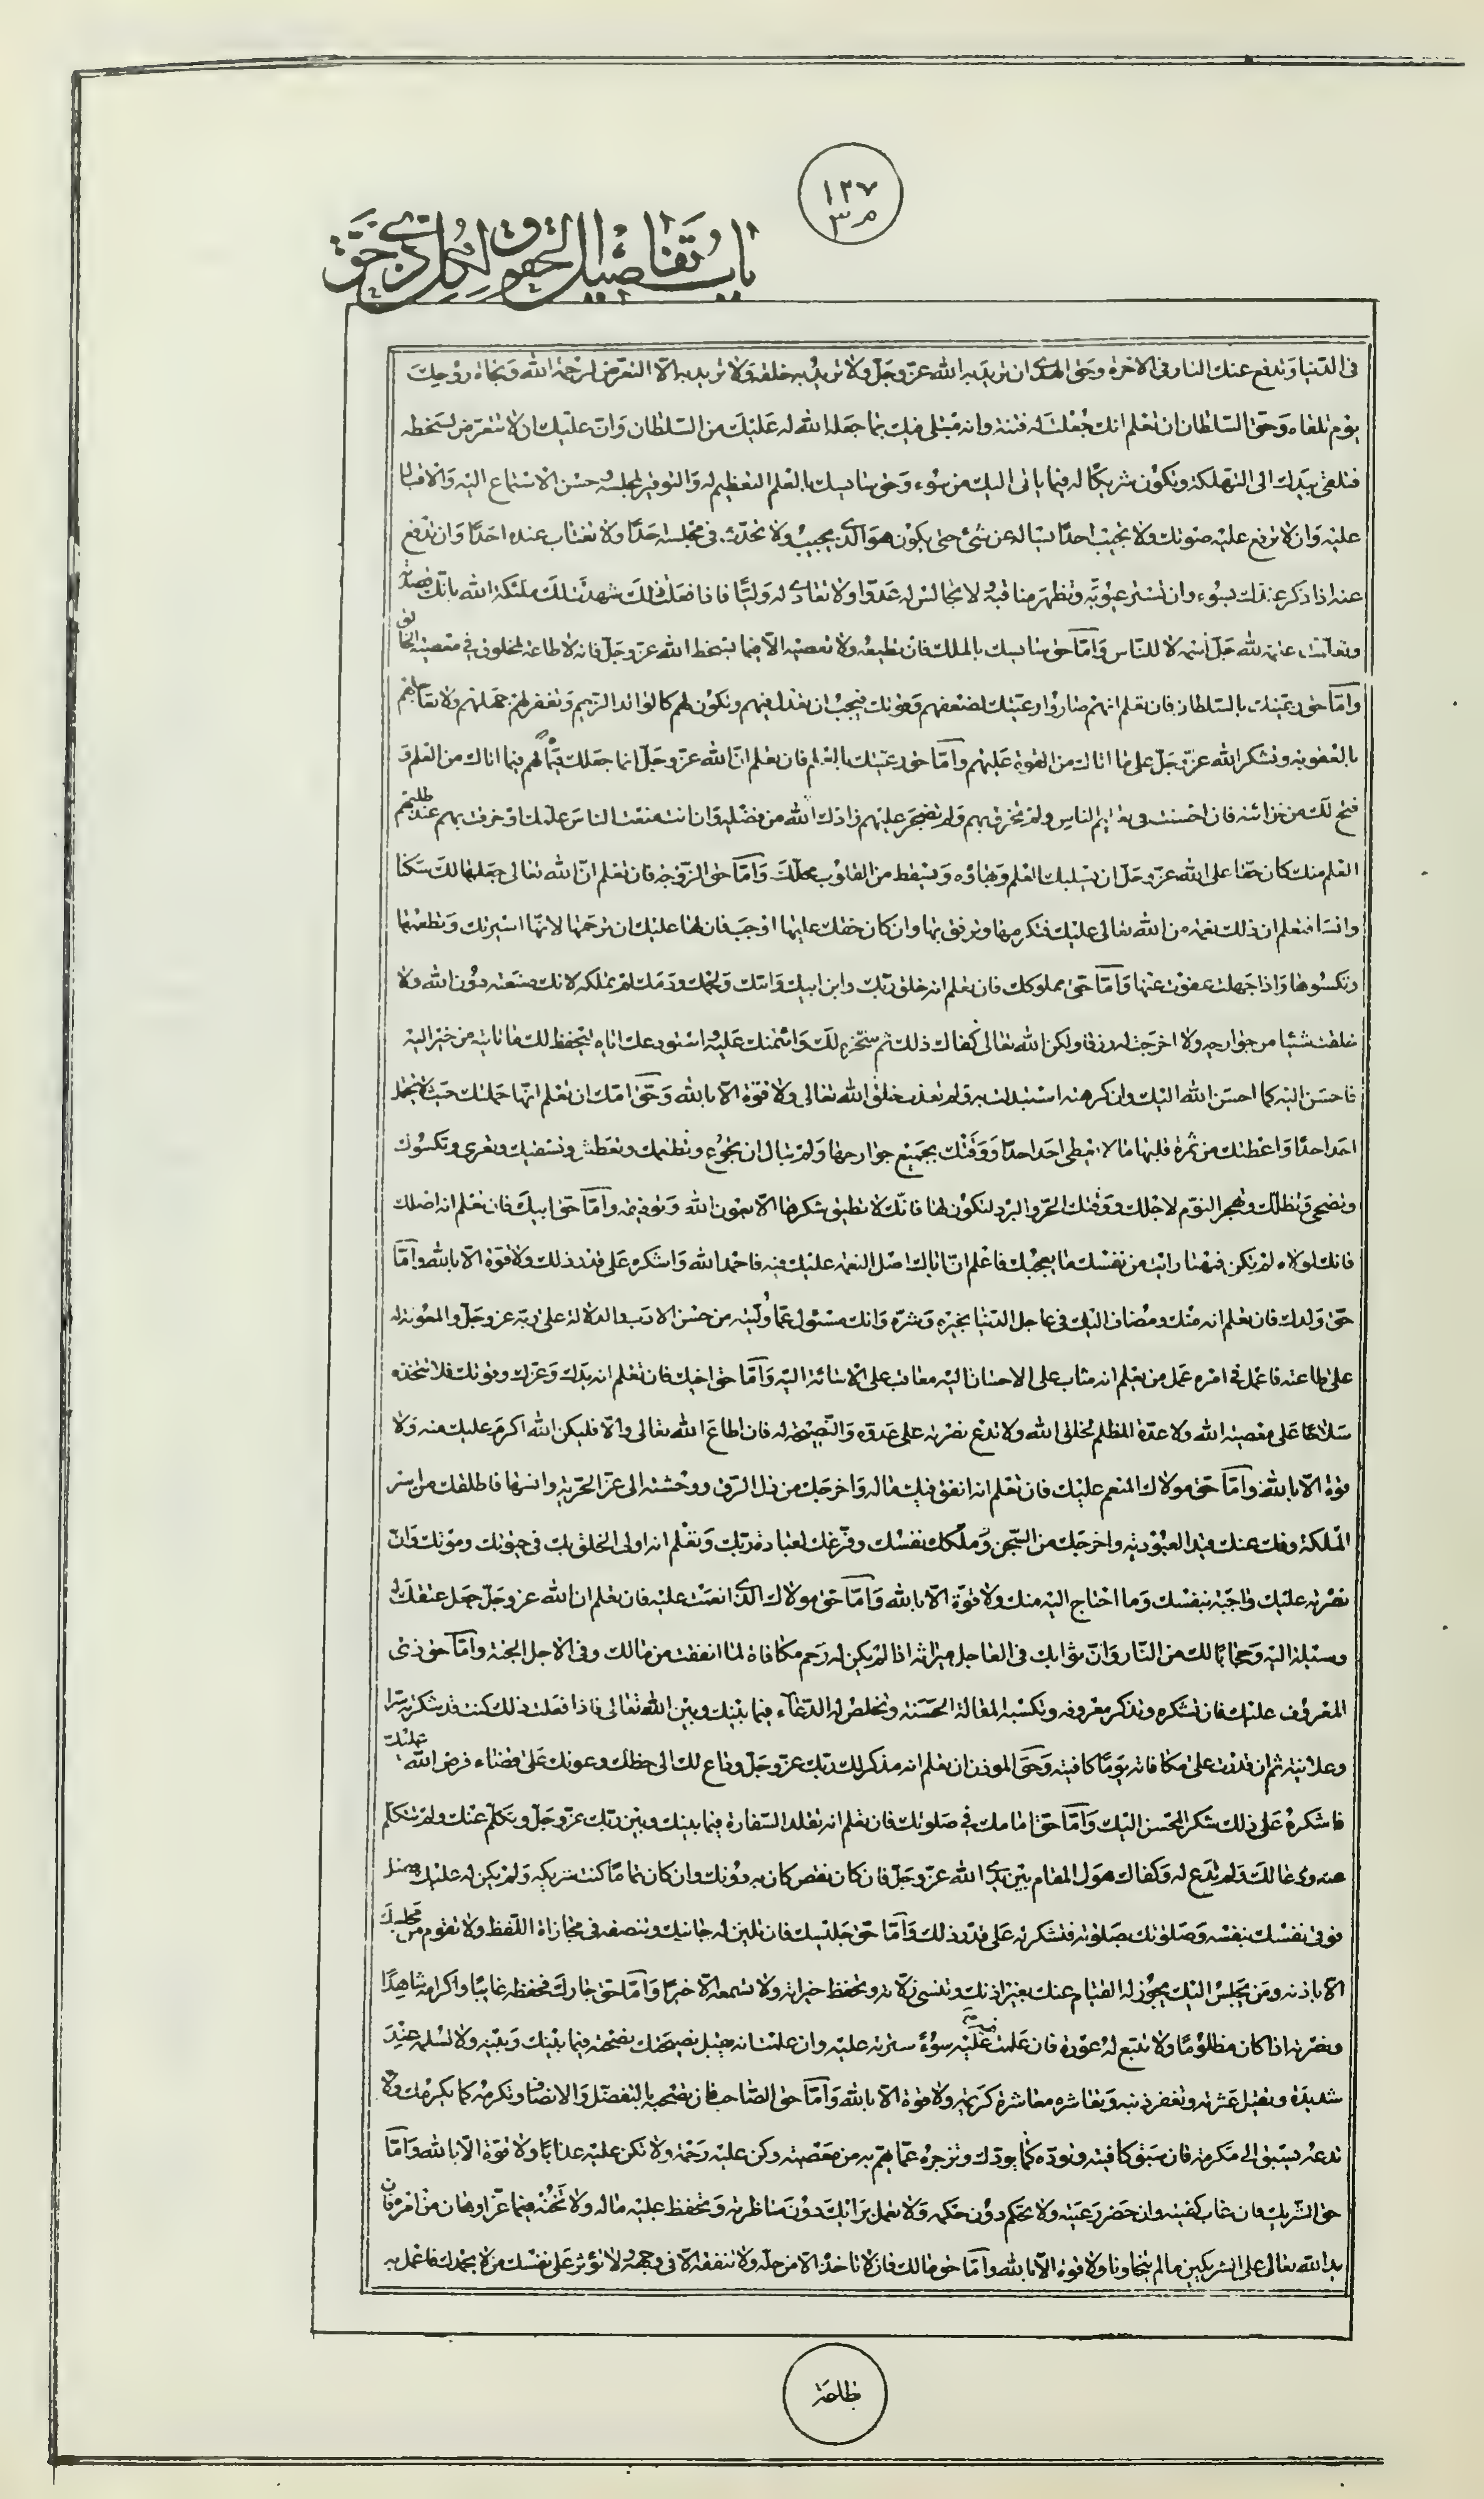 ١٢٧
باب تفاصيل الحقوق لكل ذى حق
فى الدّنيا وتدفع عنك النار فى الاخرة وحق الهدى ان تريد به الله عزّ وجلّ ولا تريد به خلقه ولا تريد به الّا التعرّض لرحمة الله ونجاة روحك
يوم تلقاه وحقّ السّلطان ان تعلم انك جُعلت له فتنة وانه مبتلى فيك بما جعله الله له عليك من السّلطان وانّ عليك ان لا تتعرّض لسخطه
فتلقى بيدك الى التهلكة وتكون شريكًا له فيما ياتى اليك من سُوء وحق سايسك بالعلم التعظيم له والتوقير لمجلسه وحسن الاستماع اليه والاقبال
عليه وان لا ترفع عليه صوتك ولا تجيب احدًا يسأله عن شئ حتى يكون هو الذى يجيب ولا تحدّث فى مجلسه احدًا ولا تغتاب عنده احدًا وان تدفع
عنه اذا ذكر عندك بسوء وان تستر عيوبه وتظهر مناقبه ولا تجالس له عدوّا ولا تعادى له وليًّا فاذا فعلت ذلك شهدت لك ملئكة الله بانّك قصدته
وتعلّمت علمه لله جلّ اسمه لا للنّاس وامّا حق سايسك بالملك فان تطيعه ولا تعصيه الّا فيما يسخط الله عزّ وجلّ فانه لا طاعة لمخلوق فى معصية الخالق
وامّا حق رعيّتك بالسّلطان فان تعلم انهم صاروا رعيّتك لضعفهم وقوتك فيجب ان تعدل فيهم وتكون لهم كالوالد الرّحيم وتغفر لهم جهلهم ولا تعاجلهم
بالعقوبة وتشكر الله عزّ وجلّ على ما اتاك من القوة عليهم وامّا حق رعيّتك بالعلم فان تعلم انّ الله عزّ وجلّ انما جعلك قيّمًا لهم فيما اتاك من العلم و
فتح لك من خزائنه فان احسنت فى تعليم الناس ولم تخرق بهم ولم تضجر عليهم زادك الله من فضله وان انت منعت الناس علمك او خرقت بهم عند طلبهم
العلم منك كان حقا على الله عزّ وجلّ ان يسلبك العلم وبهاؤه ويسقط من القلوب محلّك وامّا حق الزّوجة فان تعلم انّ الله تعالى جعلها لك سكنا
وانسا فتعلم ان ذلك نعمة من الله تعالى عليك فتكرمها وترفق بها وان كان حقك عليها اوجب فان لها عليك ان ترحمها لانّها اسيرتك وتطعمها
وتكسوها واذا جهلت عفوت عنها وامّا حق مملوكك فان تعلم انه خلق ربّك وابن ابيك وامّك ولحمك ودمك لم تملكه لانك صنعته دون الله ولا
خلقت شيئا من جوارحه ولا اخرجت له رزقا ولكن الله تعالى كفاك ذلك ثم سخّره لك وائتمنك عليه واستودعك اياه ليحفظ لك ما تاتيه من خير اليه
فاحسن اليه كما احسن الله اليك وان كرهته استبدلت به ولم تعذب خلق الله تعالى ولا قوّة الّا بالله وحقّ امّك ان تعلم انّها حملتك حيث لا يحمل
احد احدًا واعطتك من ثمرة قلبها ما لا يعطى احد احدًا ووقتك بجميع جوارحها ولم تبال ان تجوع وتطعمك وتعطش وتسقيك وتعرى وتكسوك
وتضحى وتظلّك وتهجر النوم لاجلك ووقتك الحرّ والبرد لتكون لها فانّك لا تطيق شكرها الّا بعون الله وتوفيقه وامّا حق ابيك فان تعلم انه اصلك
فانك لولاه لم تكن فمهما رايت من نفسك ما يعجبك فاعلم انّ اباك اصل النعمة عليك فيه فاحمد الله واشكره على قدر ذلك ولا قوّة الّا بالله وامّا
حقّ ولدك فان تعلم انه منك ومضاف اليك فى عاجل الدّنيا بخيره وشرّه وانك مسئول عمّا وُلّيته من حسن الادب والدلالة على ربّه عز وجلّ والمعونة له
على طاعته فاعمل فى امره عمل من يعلم انه مثاب على الاحسان اليه معاقب على الاسائة اليه وامّا حق اخيك فان تعلم انه يدك وعزّك وقوتك فلا تتخذه
سلاحًا على معصية الله ولا عدّة للظلم لخلق الله ولا تدع نصرته على عدوّه والنّصيحة له فان اطاع الله تعالى والّا فليكن الله اكرم عليك منه ولا
قوة الّا بالله وامّا حق مولاك المنعم عليك فان تعلم انه انفق فيك ماله واخرجك من ذل الرّق ووحشته الى عزّ الحريّة وانسها فاطلقك من اسر
الملكة وفك عنك قيد العبوديّة واخرجك من السّجن وملّكك نفسك وفرّغك لعبادة ربّك وتعلم انه اولى الخلق بك فى حيوتك وموتك وانّ
نصرته عليك واجبة بنفسك وما احتاج اليه منك ولا قوّة الّا بالله وامّا حق مولاك الذى انعمت عليه فان تعلم ان الله عز وجلّ جعل عتقك له
وسيلة اليه وحجابًا لك من النّار وانّ ثوابك فى العاجل ميراثه اذا لم يكن له رحم مكافاة لما انفقت من مالك وفى الاجل الجنة وامّا حق ذى
المعروف عليك فان تشكره وتذكر معروفه وتكسبه المقالة الحسنة وتخلص له الدّعاء فيما بينك وبين الله تعالى فاذا فعلت ذلك كنت قد شكرته سرّا
وعلانية ثم ان قدرت على مكافاته يومًا كافيته وحقّ الموذن ان تعلم انه مذكر لك ربّك عزّ وجلّ وداع لك الى حظك وعونك على قضاء فرض الله عليك
فاشكره على ذلك شكر المحسن اليك وامّا حقّ امامك فى صلوتك فان تعلم انه تقلد السّفارة فيما بينك وبين ربّك عزّ وجلّ وتكلّم عنك ولم تتكلّم
عنه ودعا لك ولم تدع له وكفاك هول المقام بين يدى الله عزّ وجلّ فان كان نقص كان به دونك وان كان تمامًا كنت شريكه ولم يكن له عليك فضل
فوقى نفسك بنفسه وصلوتك بصلوته فتشكر له على قدر ذلك وامّا حق جليسك فان تلين له جانبك وتنصفه فى مجازاة اللّفظ ولا تقوم من مجلسك
الّا باذنه ومن يجلس اليك يجوز له القيام عنك بغير اذنك وتنسى زلّاته وتحفظ خيراته ولا تسمعه الّا خيرًا وامّا حق جارك فحفظه غايبًا واكرامه شاهدًا
ونصرته اذا كان مظلومًا ولا تتبع له عورة فان علمت عليه سوءً سترته عليه وان علمت انه يقبل نصيحتك نصحته فيما بينك وبينه ولا تسلمه عند
شديدة وتقيل عثرته وتغفر ذنبه وتعاشره معاشرة كريمة ولا قوة الّا بالله وامّا حق الصّاحب فان تصحبه بالتفضّل والانصاف وتكرمه كما يكرمك ولا
تدعه يسبق الى مكرمة فان سبق كافيته وتودّه كما يودّك وتزجره عمّا يهمّ به من معصية وكن عليه رحمة ولا تكن عليه عذابًا ولا قوّة الّا بالله وامّا
حق الشّريك فان غاب كفيته وان حضر رعيته ولا تحكم دون حكمه ولا تعمل برايك دون مناظرته وتحفظ عليه ماله ولا تخُنه فيما عزّ او هان من امره فان
يد الله تعالى على الشريكين ما لم يتخاونا ولا قوة الّا بالله وامّا حق مالك فان لا تاخذه الّا من حلّه ولا تنفقه الّا فى وجهه ولا تؤثر على نفسك من لا يحمدك فاعمل به